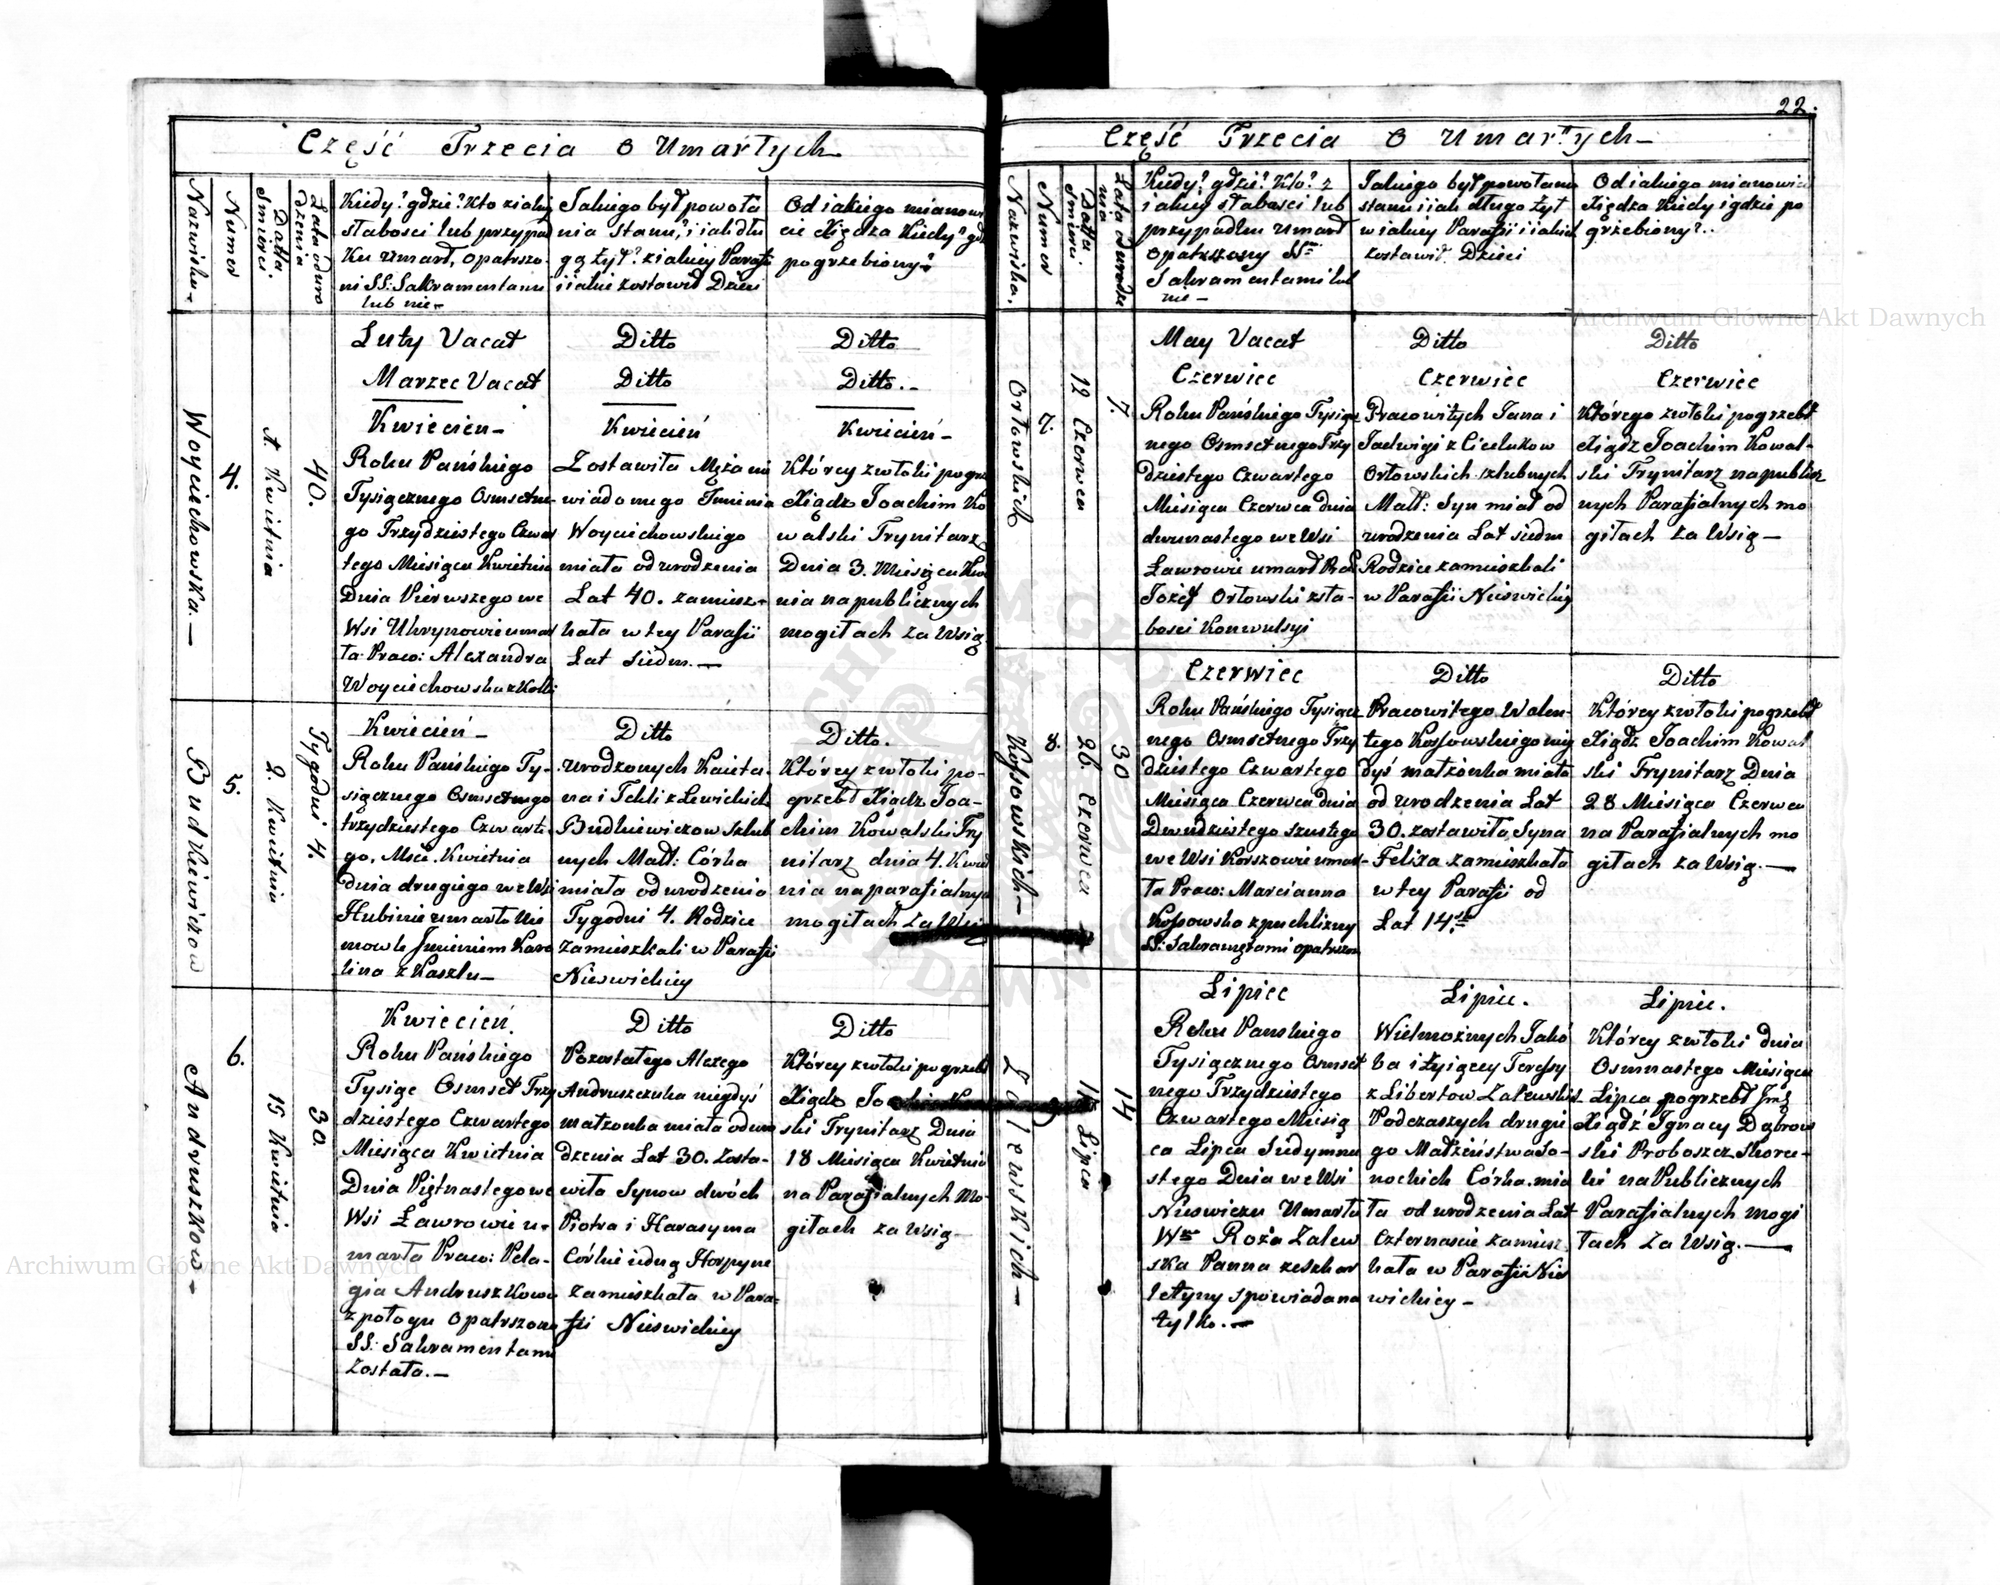 22.
Część Trzecia o Umarłych
Nazwisko
Numer
Datta Smierci.
Latta od uro dzenia
Kiedy? gdzie? Kto z iakiej
słabosci lub przypad
ku Umarł, opatrzo-
ni SS: Sakramentami
lub nie
Jakiego był powoła
nia stanu, i iak dłu
go żył? z iakiey Parafii
i iakie zostawił Dzieci
Od iakiego mianowi
cie Xiędza Kiedy? gd
pogrzebiony?
Luty Vacat
Ditto
Ditto
Marzec Vacat
Ditto
Ditto.-
Woyciechowska.—
4.
1 Kwietnia
40.
Kwiecień-
Roku Pańskiego
Tysiącznego Osmsetne-
go Trzydziestego Czwar
tego Miesiąca Kwietnia
Dnia Pierwszego we
Wsi Uhrynowie umar
ła Praco: Alexandra
Woyciechowska z Kolki
Kwiecień
Zostawiła Męża nie
wiadomego Imienia
Woyciechowskiego
miała od urodzenia
Lat 40. zamiesz-
kała w tey Parafii
Lat siedm.—
Kwiecień-
Którey zwłoki pogrze
Xiądz Joachim Ko
walski Trynitarz
Dnia 3. Miesiąca Kwie
nia na publicznych
mogiłach za Wsią
Budkiewiczow
5.
2. Kwietnia
Tygodni 4.
Kwiecień-
Roku Pańskiego Ty-
siącznego Osmsetnego
trzydziestego Czwarte
go, Msca. Kwietnia
dnia drugiego we Wsi
Hubinie umarło Nie
mowle Imieniem Karo
lina z Kaszlu—
Ditto
urodzonych Kaieta-
na i Tekli z Lewickich
Budkiewiczow szlub
nych Małł: Córka
miała od urodzenia
Tygodni 4. Rodzice
zamieszkali w Parafii
Nieswickiey
Ditto.
Którey zwłoki po-
grzebł Xiądz Joa-
chim Kowalski Try
nitarz dnia 4. Kwie
nia na parafialnych
mogiłach za Wsią
Andruszkow-
6.
15 Kwietnia
30.
Kwiecień.
Roku Pańskiego
Tysiąc Osmset Trzy
dziestego Czwartego
Miesiąca Kwietnia
Dnia Piętnastego we
Wsi Ławrowie u-
marła Praco: Pela-
gia Andruszkowa
z połogu opatrzona
SS: Sakramentami
Została.—
Ditto
Pozostałego Alexego
Andruszczuka niegdyś
małżonka miała od uro
dzenia Lat 30. Zosta-
wiła Synow dwóch
Piotra i Harasyma
Córkę iedną Horpynę
zamieszkała w Para-
fii Nieswickiey
Ditto
Którey zwłoki pogrzebł
Xiądz Joachim Kowal
ski Trynitarz Dnia
18 Miesiąca Kwietnia
na Parafialnych Mo-
giłach za Wsią—
Część Trzecia o Umarłych—
Nazwiska.
Numer
Datta Smierci.
Lata od urodze nia
Kiedy? gdzie? Kto? z
iakiey słabosci lub
przypadku Umarł
opatrzony SS
Sakramentami lub
nie—
Jakiego był powołania
stanu i iak długo żył
w iakiey Parafii i iakich
zostawił Dzieci
Od iakiego mianowi
Xiędza Kiedy i gdzie po
grzebiony?..
May Vacat
Ditto
Ditto
Orłowskich
7.
12 Czerwca
7.
Czerwiec
Roku Pańskiego Tysiącz
nego Osmsetnego Trzy
dziestego Czwartego
Miesiąca Czerwca dnia
dwunastego we Wsi
Ławrowie umarł
Józef Orłowski z sła-
bosci Konwulsyi
Czerwiec
Pracowitych Jana i
Jadwigi z Cielukow
Orłowskich szlubnych
Małł: Syn miał od
urodzenia Lat siedm
Rodzice zamieszkali
w Parafii Nieswickiey
Czerwiec
Którego zwłoki pogrzebł
Xiądz Joachim Kowal-
ski Trynitarz na publicz
nych Parafialnych mo
giłach za Wsią—
Kossowskich—
8.
26. Czerwca
30
Czerwiec
Roku Pańskiego Tysiącz
nego Osmsetnego Trzy
dziestego Czwartego
Miesiąca Czerwca dnia
Dwudziestego szustego
we Wsi Korszowie umar-
ła Praco: Marcianna
Kossowska z puchliny
SS: Sakramętami opatrzon
Ditto
Pracowitego Walen-
tego Kossowskiego nie
dyś małżonka miała
od urodzenia Lat
30. zostawiła, Syna
Felixa zamieszkała
w tey Parafii od
Lat 14.
Ditto
Którey zwłoki pogrzebł
Xiądz Joachim Kowal
ski Trynitarz Dnia
28 Miesiąca Czerwca
na Parafialnych mo
giłach za Wsią.—
Zalewskich—
9
17 Lipca
14
Lipiec
Roku Pańskiego
Tysiącznego Osmset
nego Trzydziestego
Czwartego Miesią
ca Lipca Siedymna
stego Dnia we Wsi
Nieswiczu Umarła
W Roża Zalew
ska Panna ze szkar
letyny spowiadana
tylko.—
Lipiec.
Wielmożnych Jakó
ba i żyiącey Teressy
z Libertow Zalewskich
Podczaszych drugie
go Małżeństwa So-
nockich Córka. mia
ła od urodzenia Lat
czternascie zamiesz
kała w Parafii Nie
wickiey—
Lipiec.
Którey zwłoki dnia
Osmnastego Miesiąca
Lipca pogrzebł
Xiądz Ignacy Dąbrow
ski Proboszcz Skorec-
ki na Publicznych
Parafialnych mogi
łach za Wsią.—
Archiwum Główne Akt Dawnych
Archiwum Główne Akt Dawnych